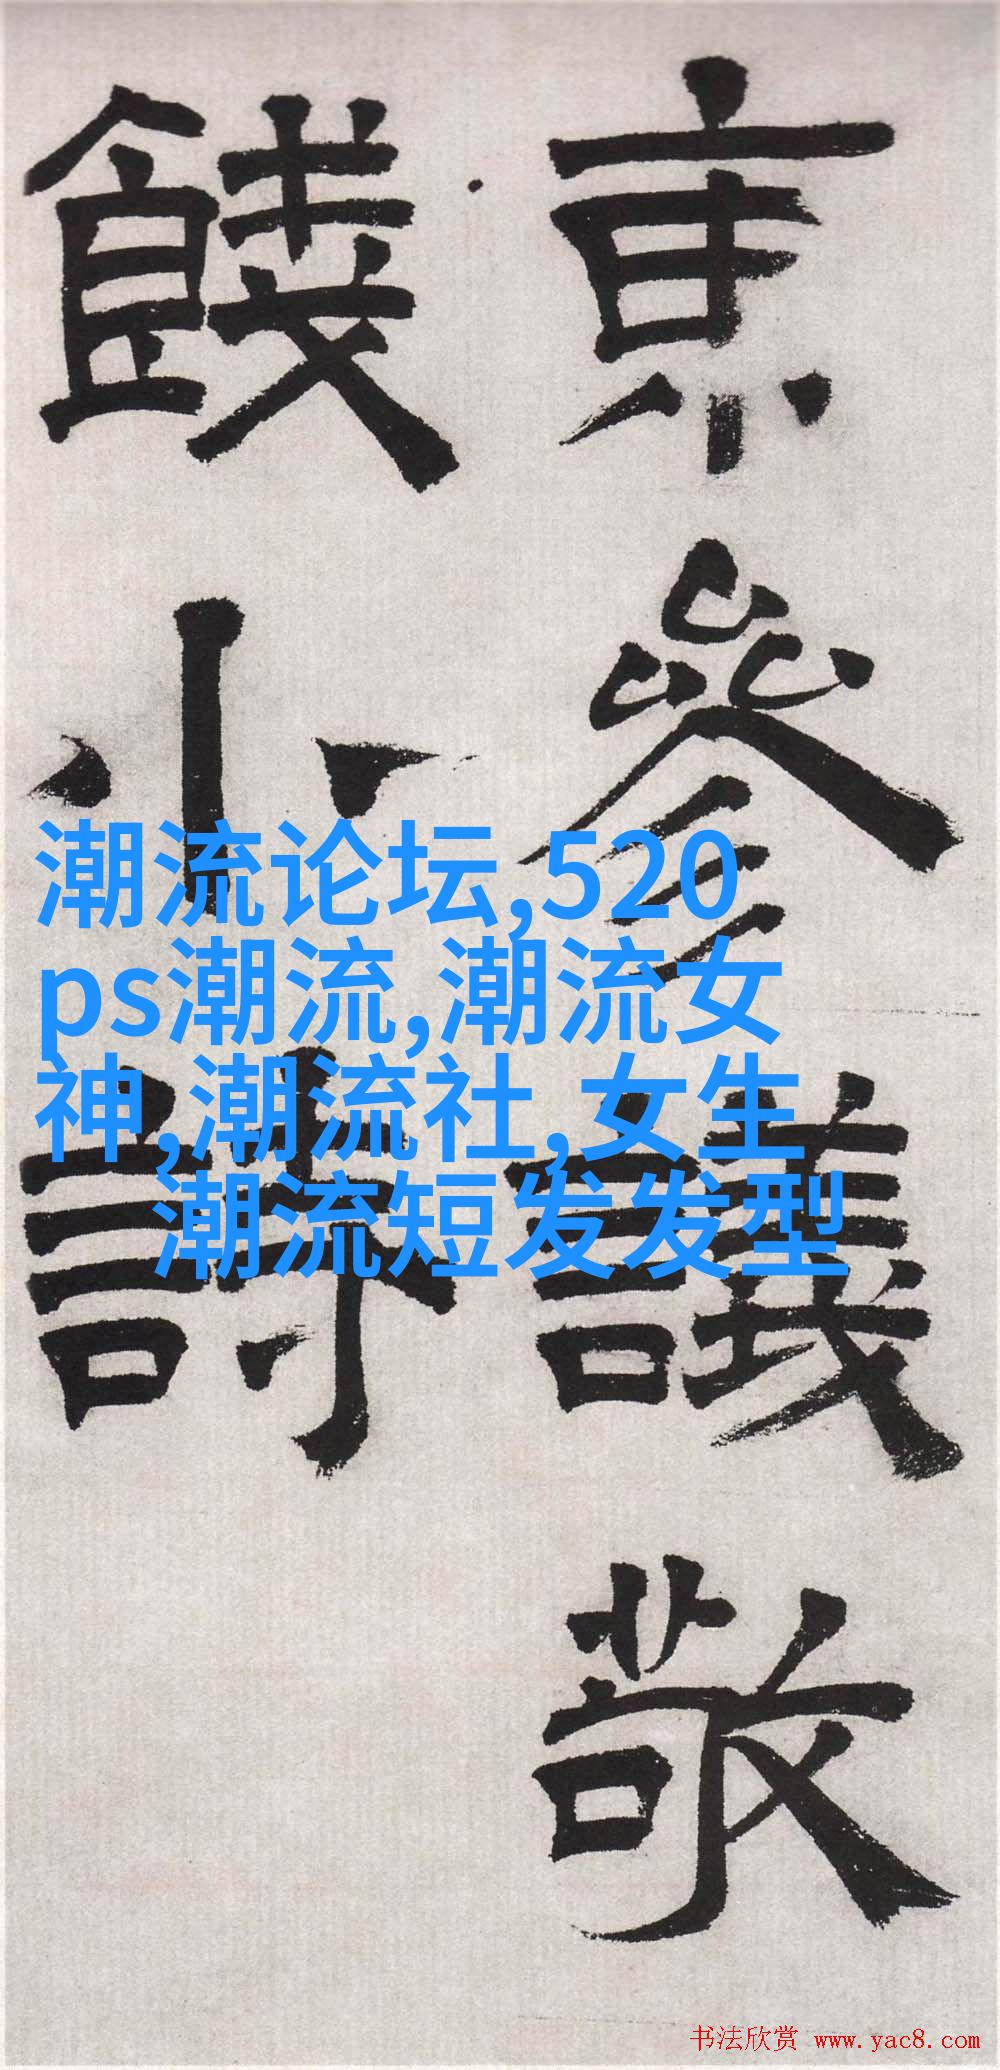 京參議敬
餞小詩
潮流论坛,520
ps潮流,潮流女
神,潮流社,女生
潮流短发发型
书法欣赏 www.yac8.com